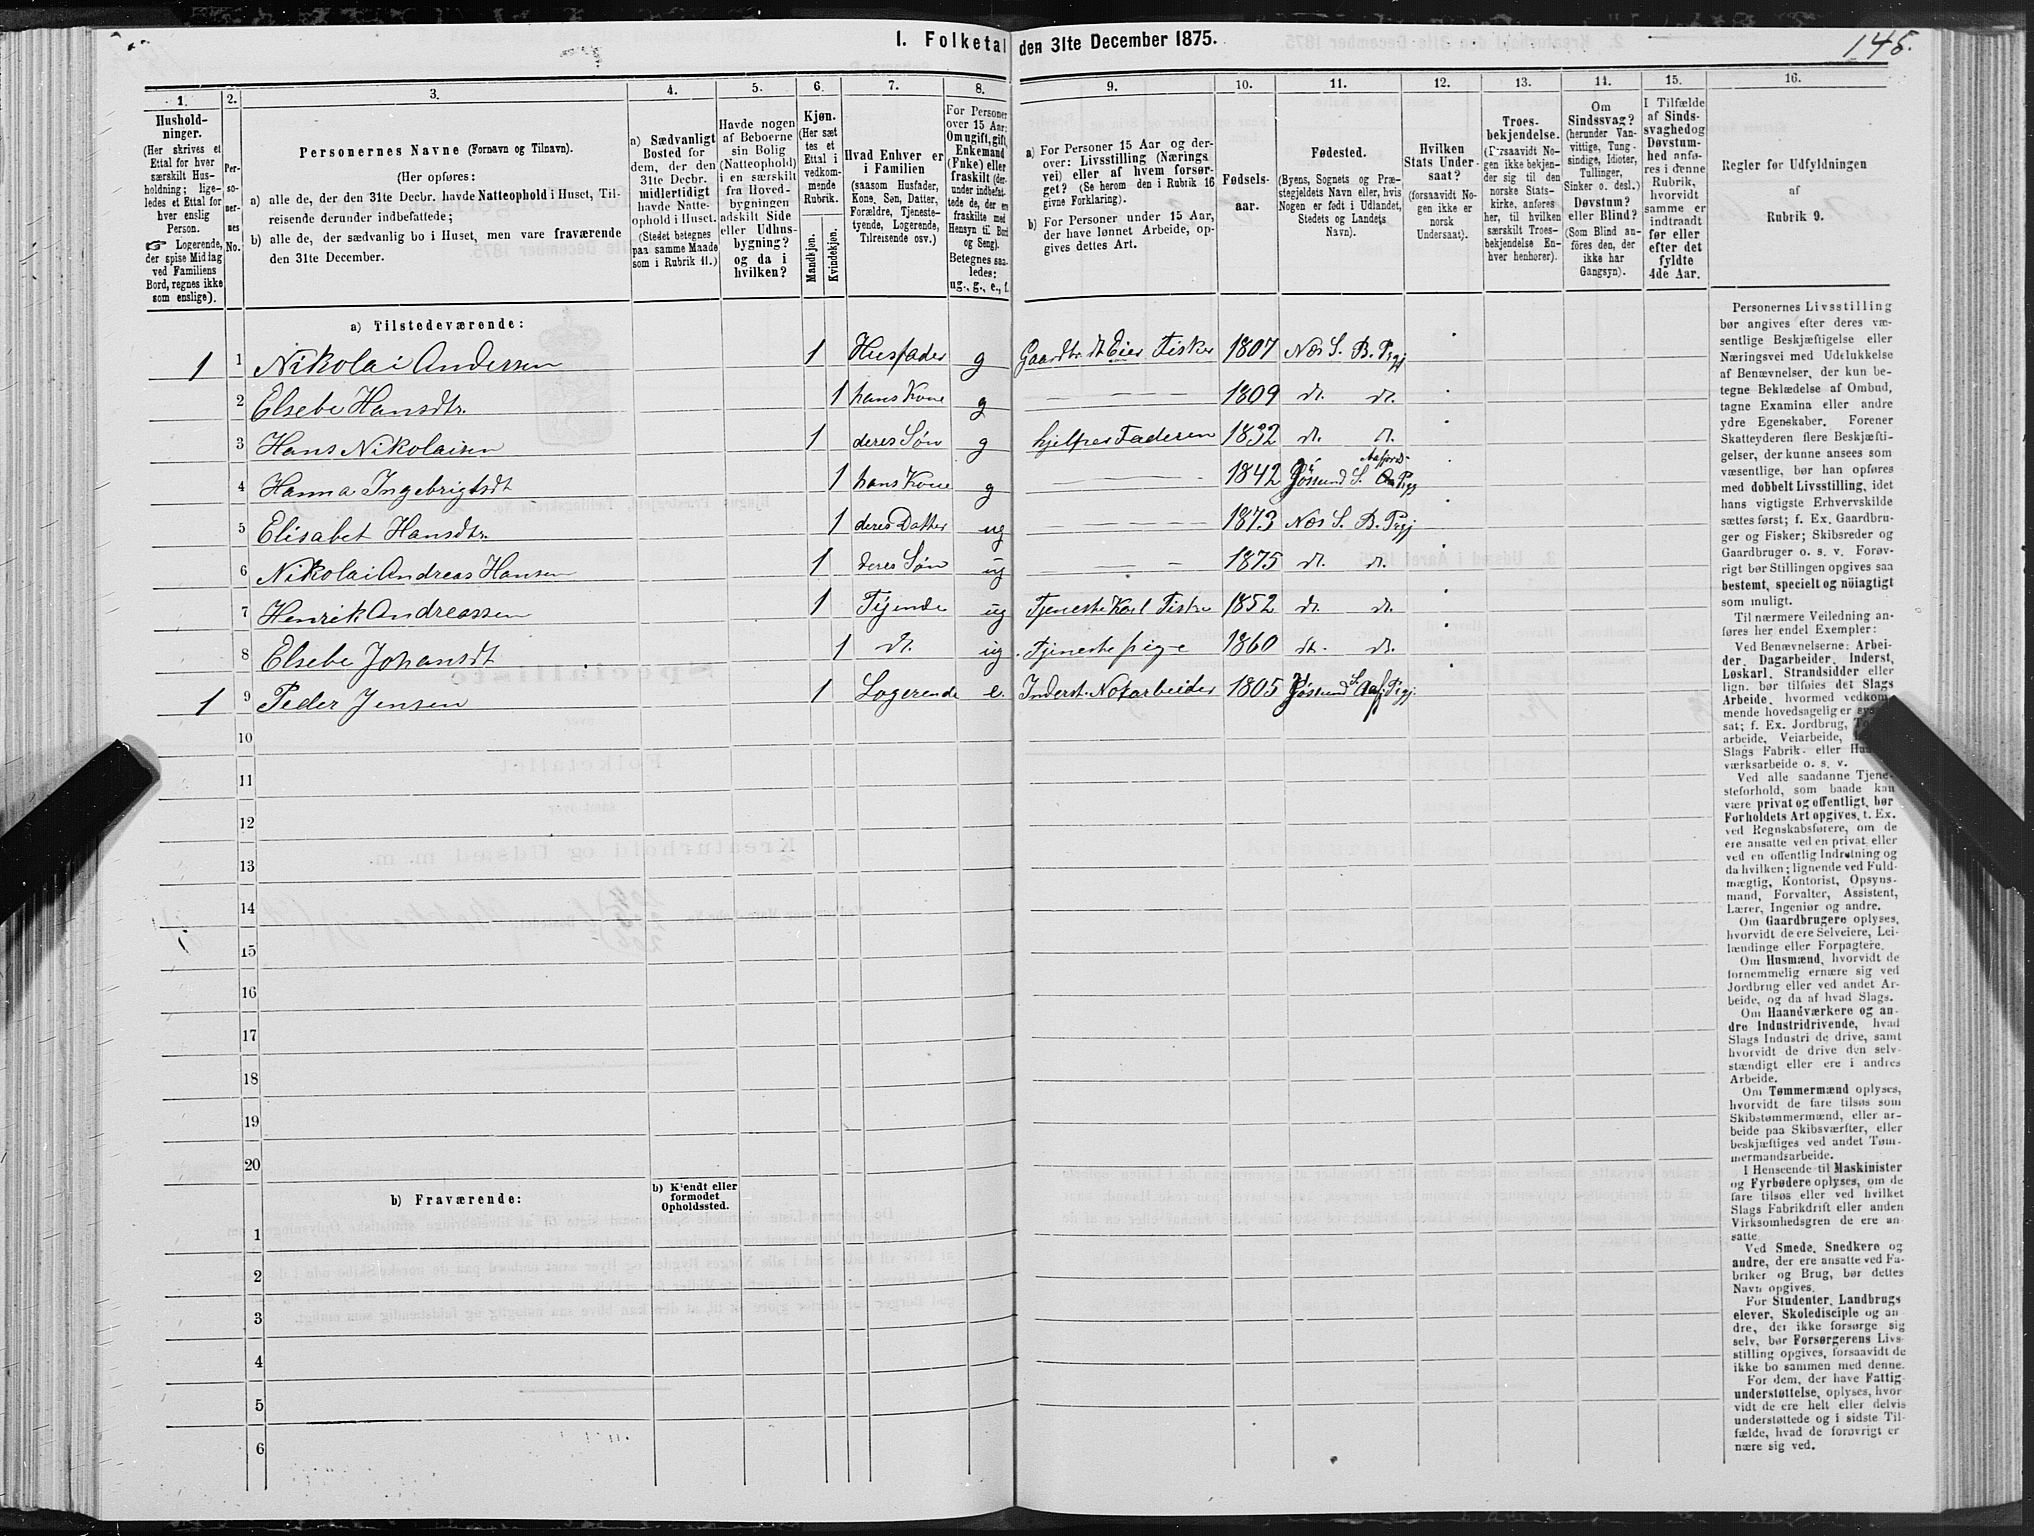 I. Folketal den 31te December 1875.
145.
1.
Hushold-
ninger.
(Her skrives et
Ettal for hver
særskilt Hus-
holdning; lige-
ledes et Ettal for
hver enslig
Person.
☞ Logerende,
der spise Middag
ved Familiens
Bord, regnes ikke
som enslige).
2.
Per-
so-
ner-
nes
No.
3.
Personernes Navne (Fornavn og Tilnavn).
(Her opføres:
a) alle de, der den 31te Decbr. havde Natteophold i Huset, Til-
reisende derunder indbefattede;
b) alle de, der sædvanlig bo i Huset, men vare fraværende
den 31te December.
4.
a) Sædvanligt
Bosted for
dem, der den
31te Decbr.
midlertidigt
havde Natte-
ophold i Huset.
(Stedet betegnes
paa samme Maade
som i Rubrik 11.)
5.
Havde nogen
af Beboerne
sin Bolig
(Natteophold)
i en særskilt
fra Hoved-
bygningen
adskilt Side
eller Udhus-
bygning?
og da i
hvilken?
6.
Kjøn.
(Her sæt
tes et
Ettal i
vedkom-
mende
Rubrik.
Mandkjøn.
Kvindekjøn.
7.
Hvad Enhver er
i Familien
(saasom Husfader,
Kone, Søn, Datter,
Forældre, Tjeneste-
tyende, Logerende,
Tilreisende osv.)
8.
For Personer
over 15 Aar:
Om ugift, gift,
Enkemand
(Enke) eller
fraskilt (der-
under indbefat-
tede de, der ere
fraskilte med
Hensyn til Bord
og Seng).
Betegnes saa-
ledes:
ug., g., e., f.
9.
a) For Personer 15 Aar og der-
over: Livsstilling (Nærings
vei) eller af hvem forsør-
get? (Se herom den i Rubrik 16
givne Forklaring).
b) For Personer under 15 Aar,
der have lønnet Arbeide, op-
gives dettes Art.
10.
Fødsels-
aar.
11.
Fødested.
(Byens, Sognets og Præ-
stegjeldets Navn eller, hvis
Nogen er født i Udlandet,
Stedets og Landets
Navn).
12.
Hvilken
Stats Under-
saat?
(forsaavidt No-
gen ikke er
norsk
Undersaat).
13.
Troes-
bekjendelse.
(Forsaavidt No-
gen ikke bekjen-
der sig til den
norske Stats-
kirke, anføres
her, til hvilken
særskilt Troes-
bekjendelse En-
hver henhører).
14.
Om
Sindssvag?
(herunder Van-
vittige, Tung-
sindige, Idioter,
Tullinger,
Sinker o. desl.)
Døvstum?
eller Blind?
(Som Blind an-
føres den, der
ikke har
Gangsyn).
15.
I Tilfælde
af Sinds-
svaghed og
Døvstum-
hed anfø-
res i denne
Rubrik,
hvorvidt
samme er
indtraadt
før eller
efter det
fyldte
4de Aar.
16.
Regler for Udfyldningen
af
Rubrik 9.
a) Tilstedeværende:
1 1 Nikolai Andersen 1 Husfader g Gaardbr. dt Eier Fisker 1807 Næs S. B. Prgj
2 Elsebe Hansdtr. 1 hans Kone g — — — 1809 dt. dt.
3 Hans Nikolaisen 1 deres Søn g hjelper Faderen 1832 dt. dt.
4 Hanna Ingebrigtsdt 1 hans Kone g — — — 1842 Jøssund S. Aafjords Prgj
5 Elisabet Hansdtr. 1 deres Datter ug — — — 1873 Næs S. B. Prgj
6 Nikolai Andreas Hansen 1 deres Søn ug — — — 1875 dt. dt.
7 Henrik Andreassen 1 Tyende ug Tjeneste Karl Fisker 1852 dt. dt.
8 Elsebe Johansdt 1 dt. ug Tjeneste pige 1860 dt. dt.
1 9 Peder Jensen 1 Logerende e. Inderst. Notarbeider 1805 Jøssund S. Aafj. Prgj.
10
11
12
13
14
15
16
17
18
19
20
b) Fraværende:
b) Kjendt eller
formodet
Opholdssted.
1
2
3
4
5
6
Personernes Livsstilling
bør angives efter deres væ-
sentlige Beskjæftigelse eller
Næringsvei med Udelukkelse
af Benævnelser, der kun be-
tegne Beklædelse af Ombud,
tagne Examina eller andre
ydre Egenskaber. Forener
Skatteyderen flere Beskjæfti-
gelser, der kunne ansees som
væsentlige, bør han opføres
med dobbelt Livsstilling, idet
hans vigtigste Erhvervskilde
sættes først; f. Ex. Gaardbru-
ger og Fisker; Skibsreder og
Gaardbruger o. s. v. Forøv-
rigt bør Stillingen opgives saa
bestemt, specielt og nøiagtigt
som muligt.
Til nærmere Veiledning an-
føres her endel Exempler:
Ved Benævnelserne: Arbei-
der, Dagarbeider, Inderst,
Løskarl, Strandsidder eller
lign. bør tilføies det Slags
Arbeide, hvormed vedkom-
mende hovedsagelig er syssel-
sat; f. Ex. Jordbrug,
arbeide, Veiarbeide,
Slags Fabrik- eller
værksarbeide o. s. v.
Ved alle saadanne Tjene-
steforhold, som baade kan
være privat og offentligt, bør
Forholdets Art opgives, t. Ex.
ved Regnskabsførere, om de
ere ansatte ved en privat eller
ved en offentlig Indretning og
da hvilken; lignende ved Fuld-
mægtig, Kontorist, Opsyns-
mand, Forvalter, Assistent,
Lærer, Ingeniør og andre.
Om Gaardbrugere oplyses,
hvorvidt de ere Selveiere, Lei-
lændinge eller Forpagtere.
Om Husmænd, hvorvidt de
fornemmelig ernære sig ved
Jordbrug eller ved andet Ar-
beide, og da af hvad Slags.
Om Haandværkere og an-
dre Industridrivende, hvad
Slags Industri de drive, samt
hvorvidt de drive den selv-
stændigt eller ere i andres
Arbeide.
Om Tømmermænd oplyses,
hvorvidt de fare tilsøs som
Skibstømmermænd, eller ar-
beide paa Skibsværfter, eller
beskjæftiges ved andet Tøm-
mermandsarbeide.
I Henseende til Maskinister
og Fyrbødere oplyses, om de
fare tilsøs eller ved hvilket
Slags Fabrikdrift eller anden
Virksomhedsgren de ere an-
satte.
Ved Smede, Snedkere og
andre, der ere ansatte ved Fa-
briker og Brug, bør dettes
Navn opgives.
For Studenter, Landbrugs
elever, Skoledisciple og an-
dre, der ikke forsørge sig
selv, bør Forsørgerens Livs-
stilling opgives, forsaavidt de
ikke bo sammen med denne.
For dem, der have Fattig-
understøttelse, oplyses, hvor-
vidt de ere helt eller delvis
understøttede og i sidste Til-
fælde, hvad de forøvrigt er
nære sig ved.